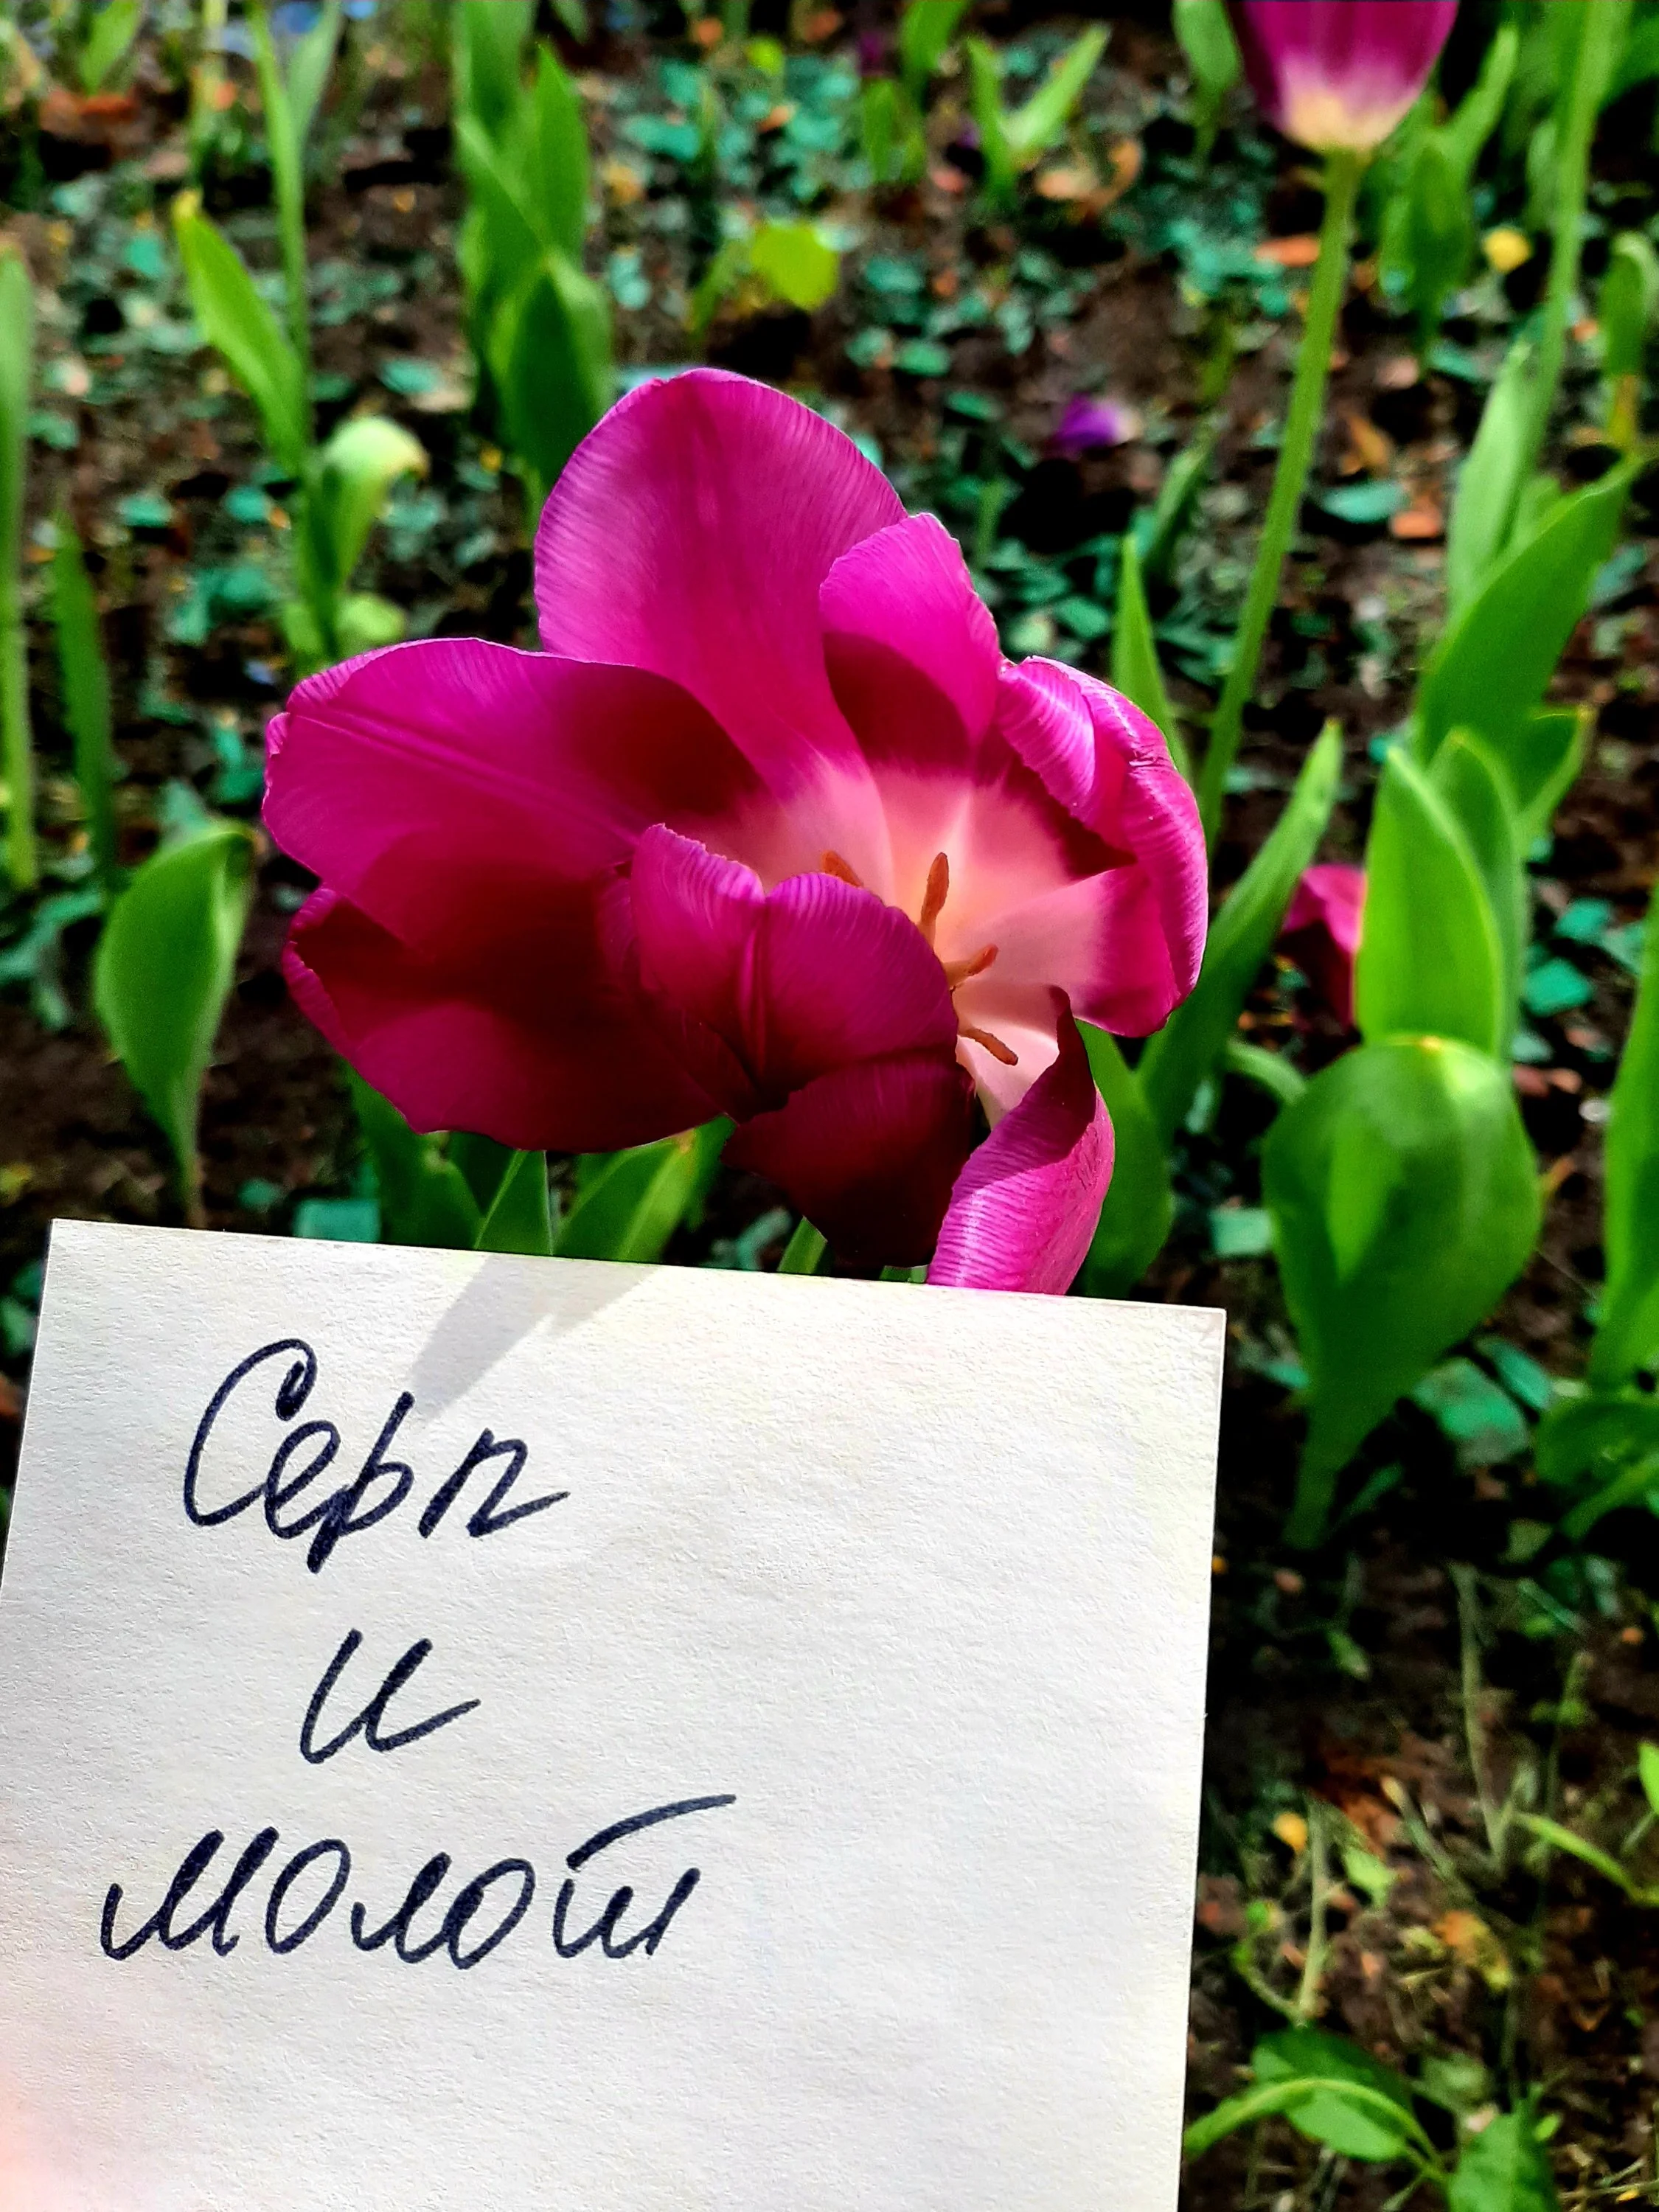 Серп
и
молот